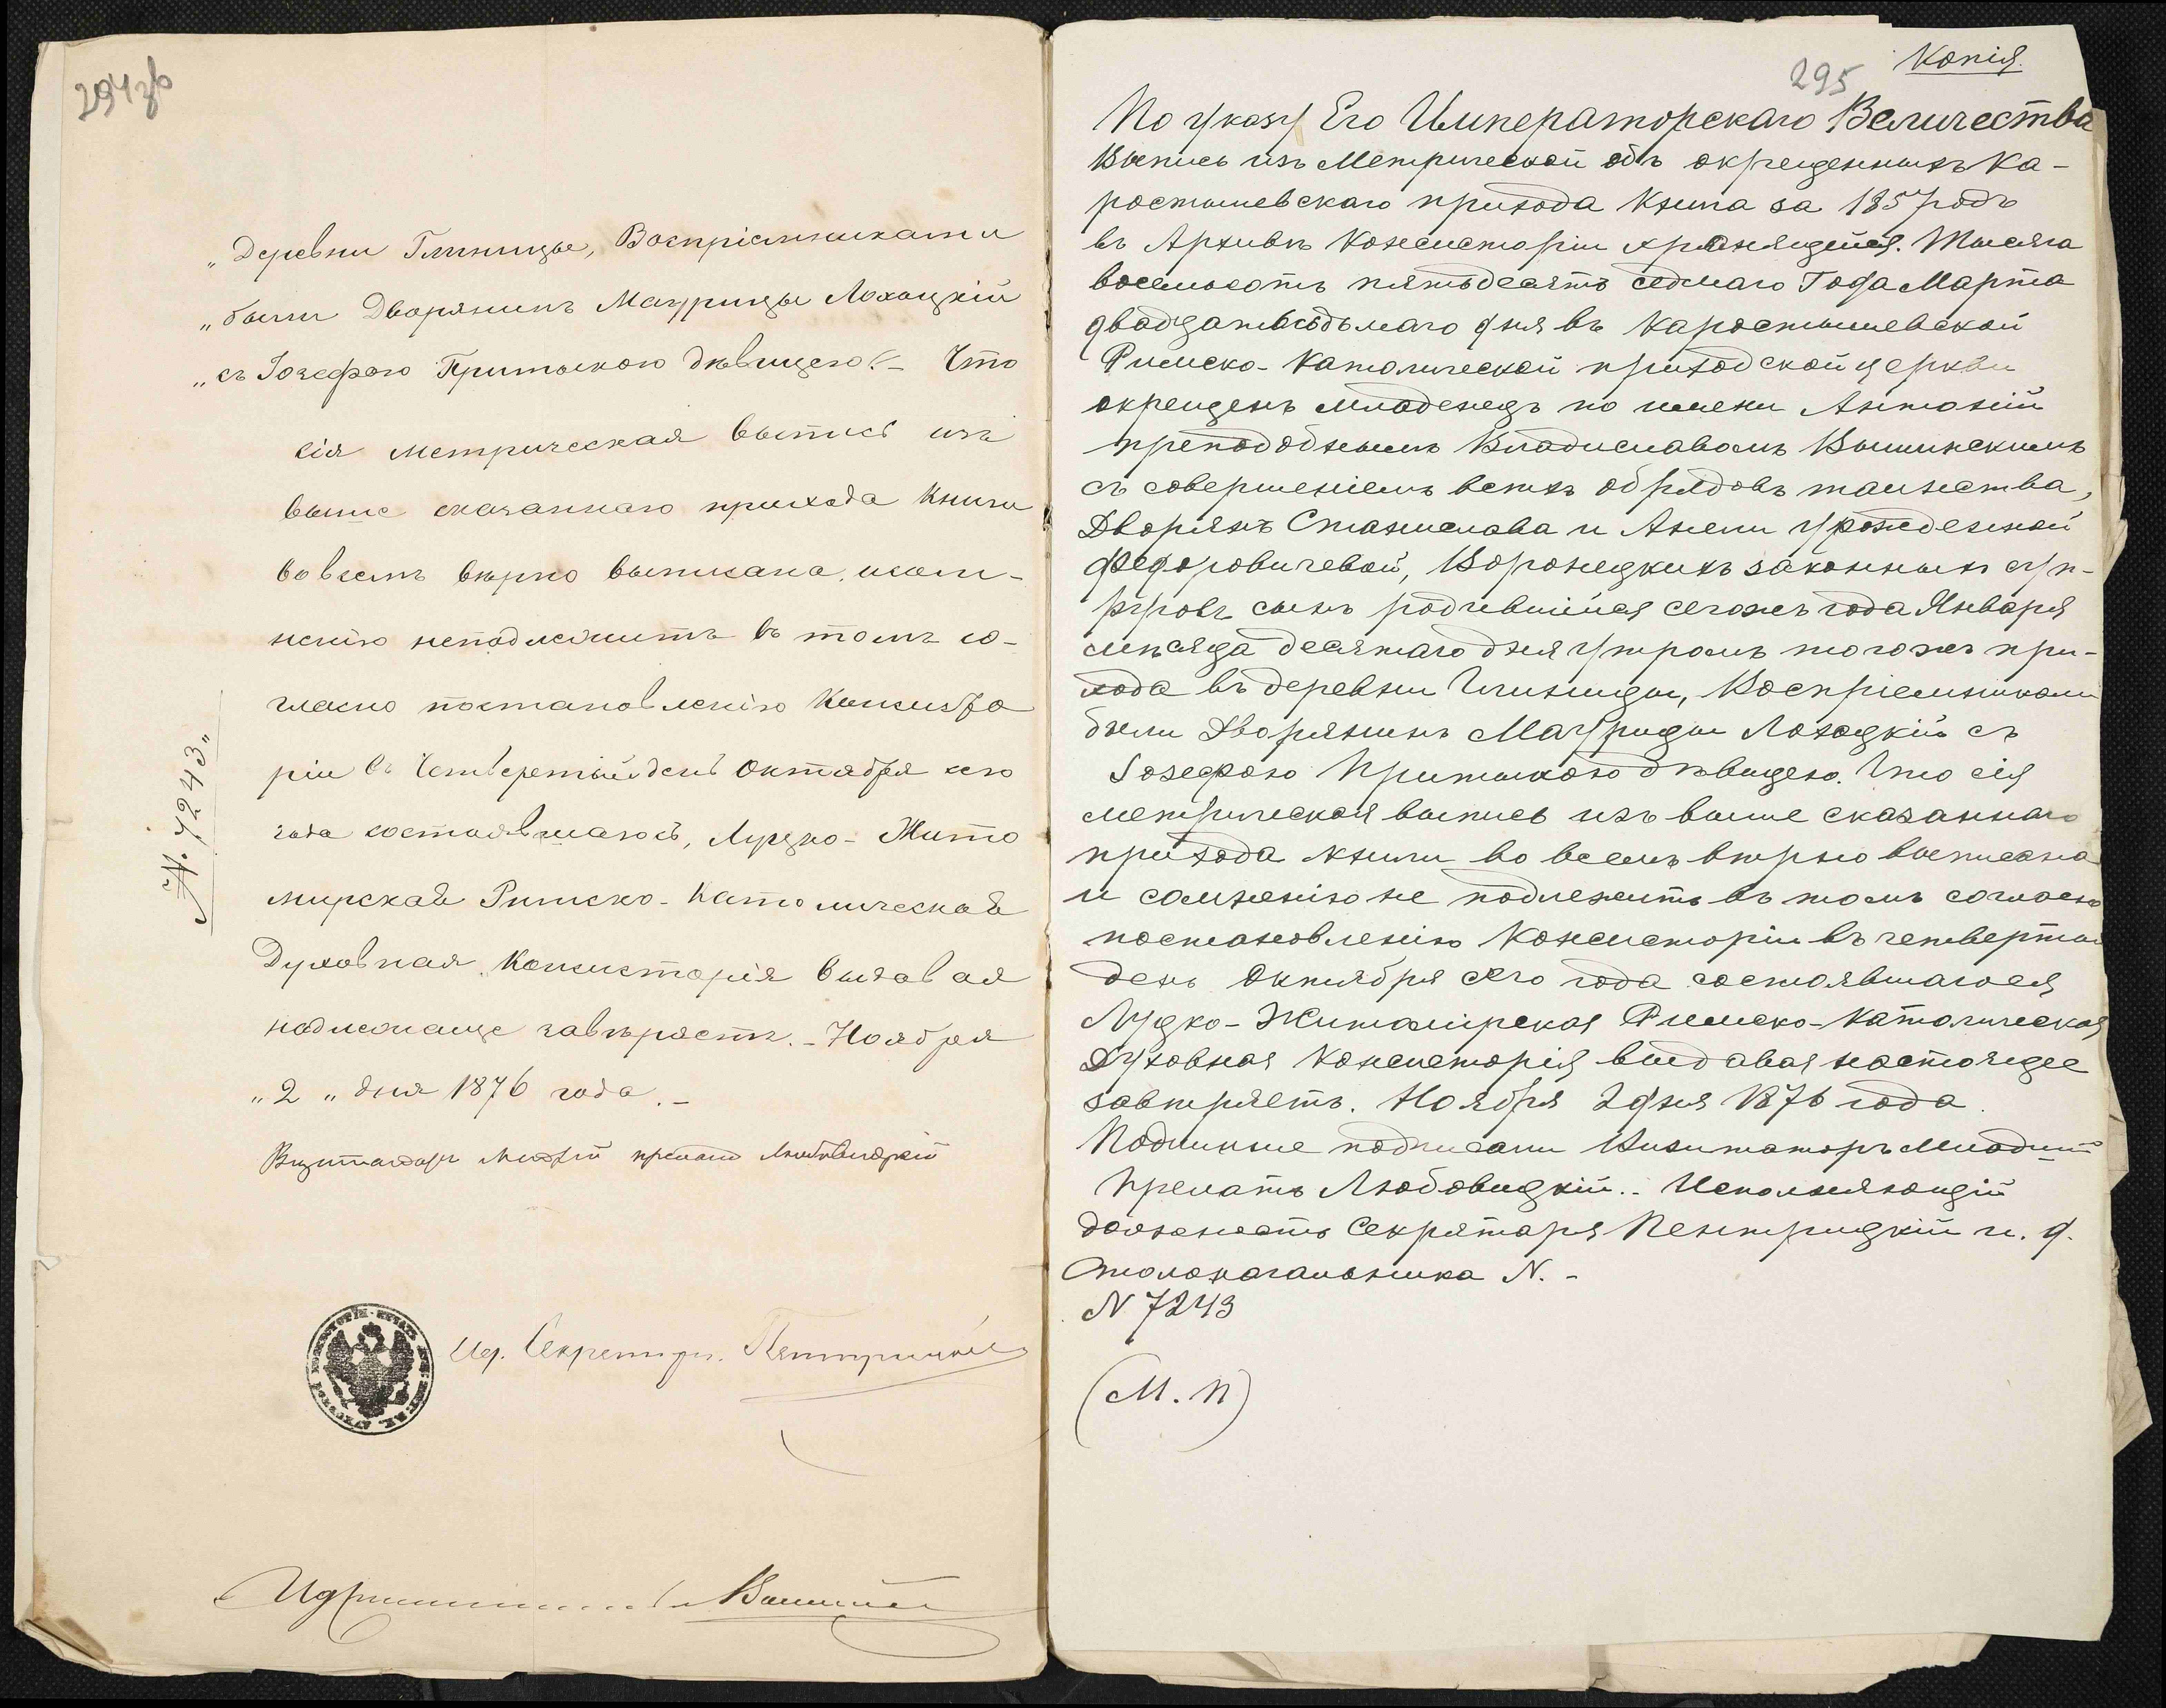 294 зв
„Деревни Глиницы, Воспріемниками
„были Дворянинъ Маурицы Лохоцкій
„съ Іозефою Притыкою дѣвицею.„– Что
сія метрическая выпись изъ
выше сказаннаго прихода Книги
во всемъ вѣрно выписана, исом-
нению неподлежитъ въ томъ со-
гласно постановленію Консисто
ріи въ Четвертый день Октября сего
года состоявшагось, Луцко-Жито
мирская Римско-Католическая
Духовная Консисторія выдавая
надлежаще завѣряетъ.– Ноября
„2„ дня 1876 года.–
Визитаторъ прелатъ Любовицкій
№ 7243„
Ид. Секретаря Пентрицкій
295
Копія.
По указу Его Императорскаго Величества
Выпись изъ Метрической объ окрещенныхъ Ка-
ростышевскаго прихода Книга за 1857 годъ
въ Архивѣ Консисторіи хранящейся. Тысяча
восемьсотъ пятьдесятъ седмаго Года Марта
двадцатьседьмаго дня въ Каростышевской
Римско-Католической приходской церкви
окрещенъ младенецъ по имени Антоній
преподобнымъ Владиславомъ Вышинскимъ
съ совершеніемъ всехъ обрядовъ таинства,
Дворянъ Станислава и Анели урожденной
Федоровичевой, Воронецкихъ законныхъ суп-
руговъ сынъ родившійся сегожъ года Января
мѣсяца десятаго дня утромъ тогожъ при-
хода въ деревни Глиницы, Воспріемниками
были Дворянинъ Маурицы Лохоцкій съ
Іозефою Притыкою дѣвицею. Что сія
метрическая выпись изъ выше сказаннаго
прихода книги во всемъ вѣрно выписана
и сомненію не подлежитъ въ томъ согласно
постановленію Консисторіи въ четвертый
день Октября сего года состоявшагося
Луцко-Житомірская Римско-Католическая
Духовная Консисторія выдавая настоящее
завѣряетъ. Ноября 2 дня 1876 года.
Подлинные подписали Визитаторъ
Прелатъ Любовицкій.. Исполняющій
должность Секрятаря Пентрицкій и. д.
Столоначальника N.–
N 7243
(М. П)